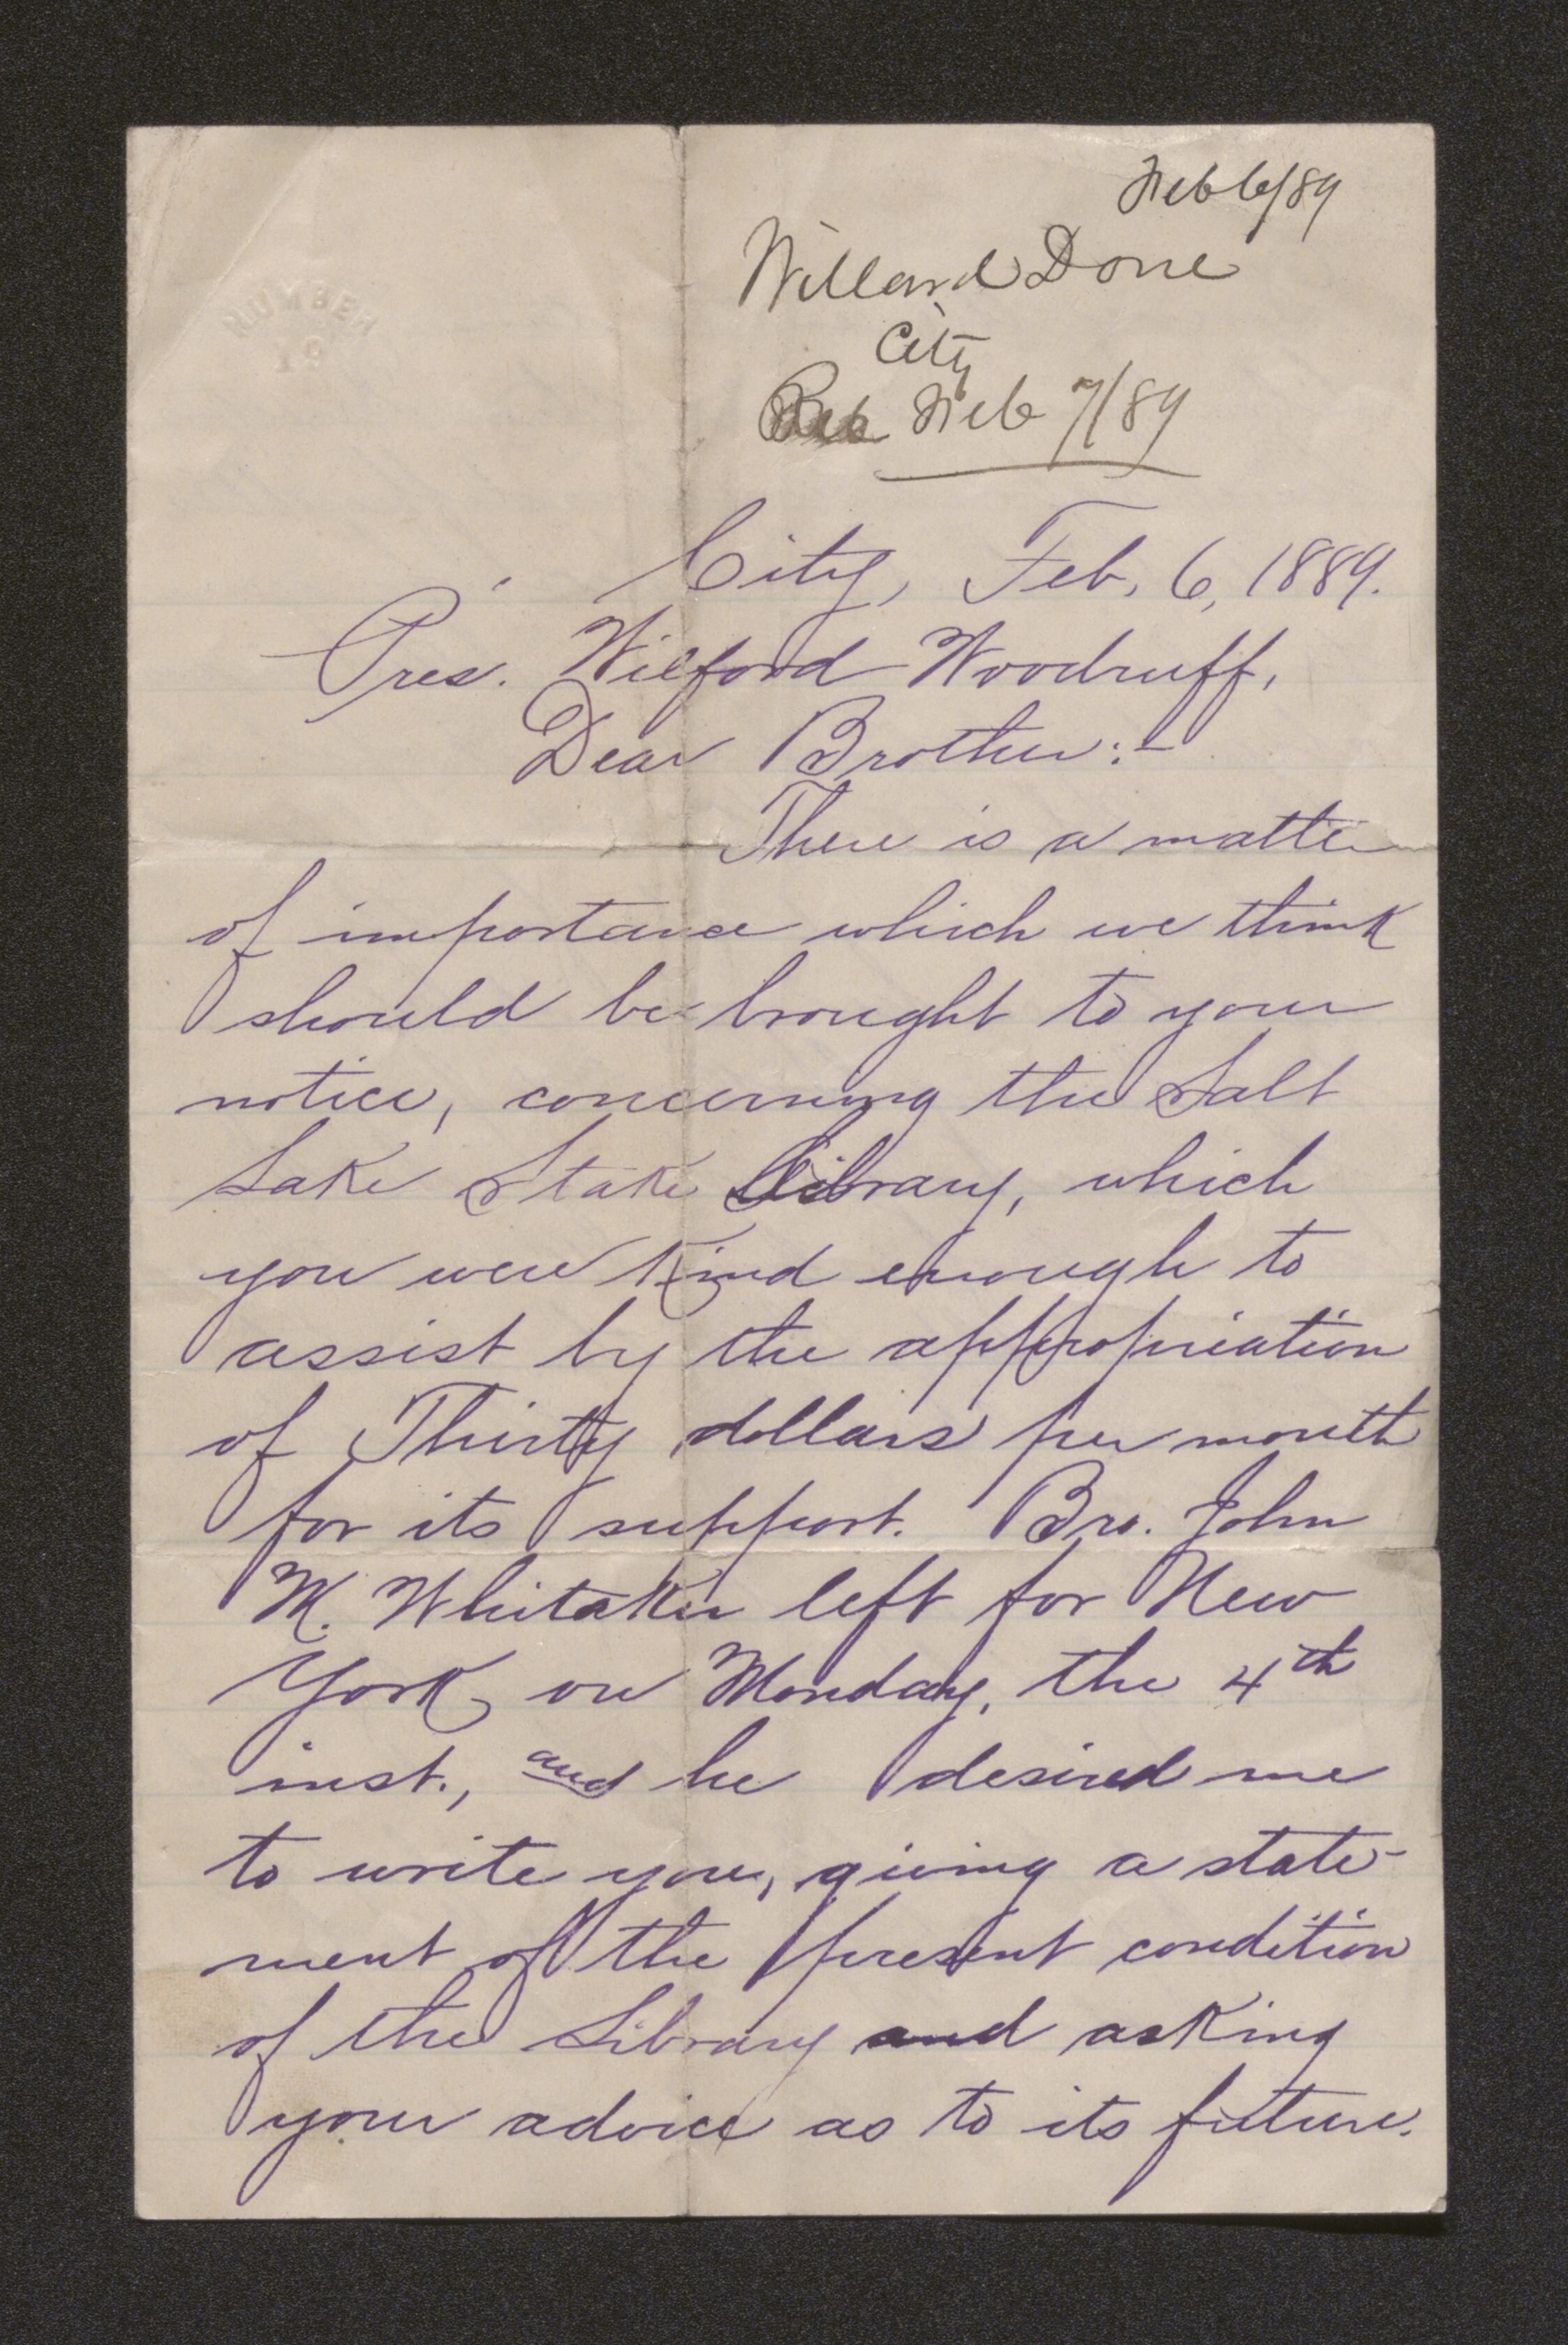 NUMBER
19
Feb 6/89
Willard Done
City
Feb 7/89
City, Feb. 6, 1889.
Pres. Wilford Woodruff,
Dear Brother:-
There is a matter
of importance which we think
should be brought to your
notice, concerning the Salt
Lake Stake Library, which
you were kind enough to
assist by the appropriation
of Thirty dollars per month
for its support. Bro. John
M. Whitaker left for New
York on Monday, the 4th
inst., and he desired me
to write you, giving a state-
ment of the present condition
of the Library and asking
your advice as to its future.